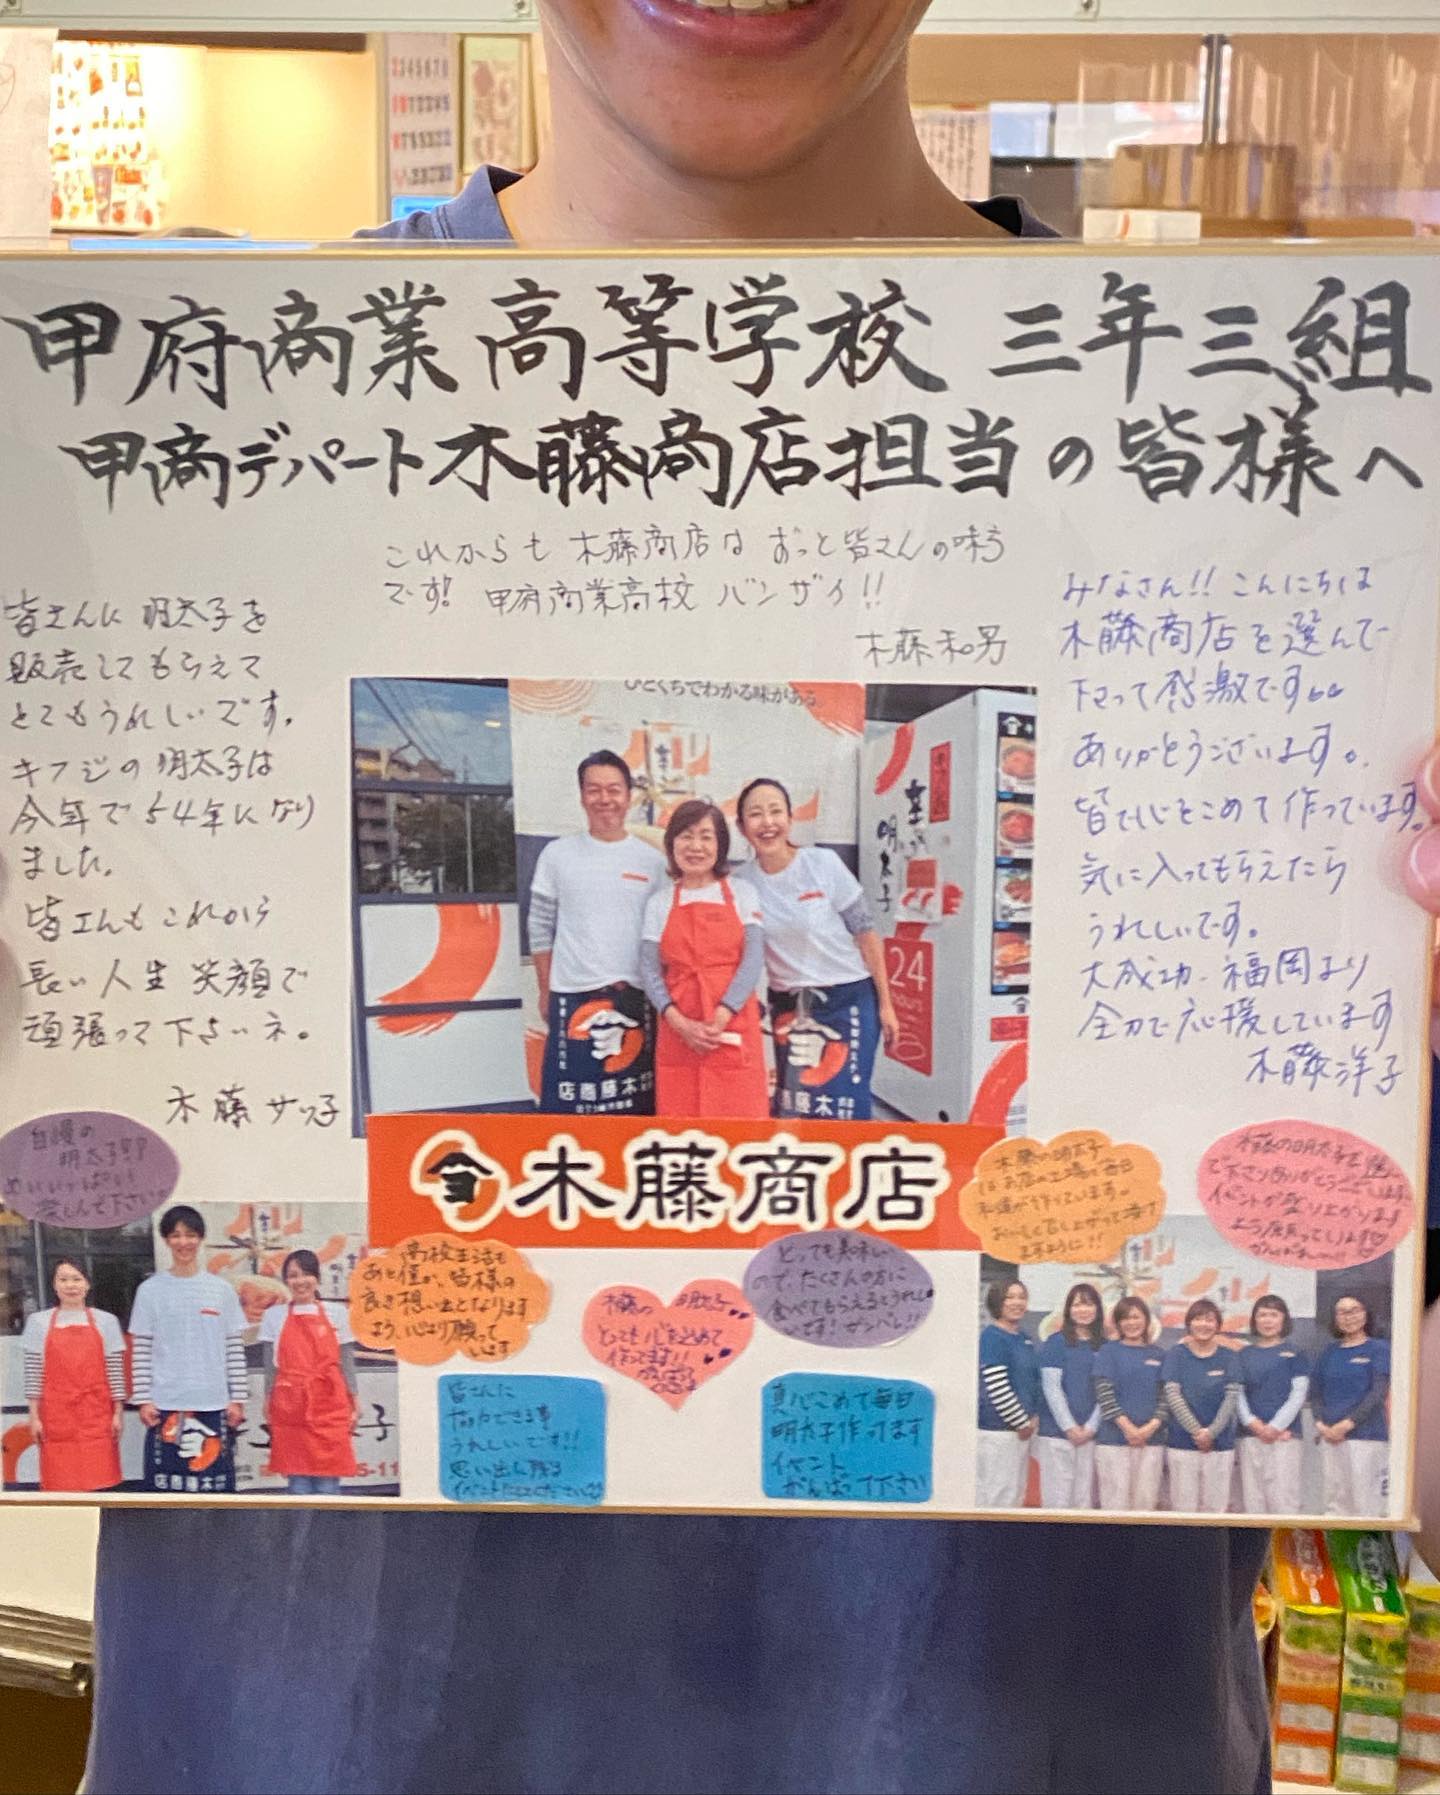 甲府商業高等学校 三年三組
甲商デパート木藤商店担当の皆様へ
これからも 木藤商店は ずっと皆さんの味方
です! 甲府商業高校 バンザイ!!
木藤和男
皆さんに 明太子を
販売してもらえて
とてもうれしいです。
キフジの 明太子は
今年で54年になり
ました。
皆さんも これから
長い人生 笑顔で
頑張って下さいネ。
木藤 サツ子
みなさん!! こんにちは
木藤商店を選んで
下さって感激です
ありがとうございます。
皆で心をこめて作っています。
気に入ってもらえたら
うれしいです。
大成功、福岡より
全力で応援しています
木藤洋子
ひとくちでわかる味がある
明太子
24
hours
木藤商店
木藤商店
木藤商店
自慢の
明太子!!
楽しんで下さい
高校生活も
あと僅か、皆様の
良き想い出となります
よう、心より願って
います
木藤の 明太子
とっても心を込めて
作ってます!!
とっても美味しい
ので、たくさんの方に
食べてもらえるとうれし
いです!ガンバレ!!
木藤の明太子
は お店の工場で毎日
私達が作っています。
おいしく召し上がって頂け
ますように!!
木藤の明太子を選ん
で下さりありがとうございます。
イベントが盛り上がります
よう願っています
皆さんに
協力できる事
うれしいです!!
思い出に残る
イベントにしてください
真心こめて毎日
明太子作ってます
イベント
がんばって下さい